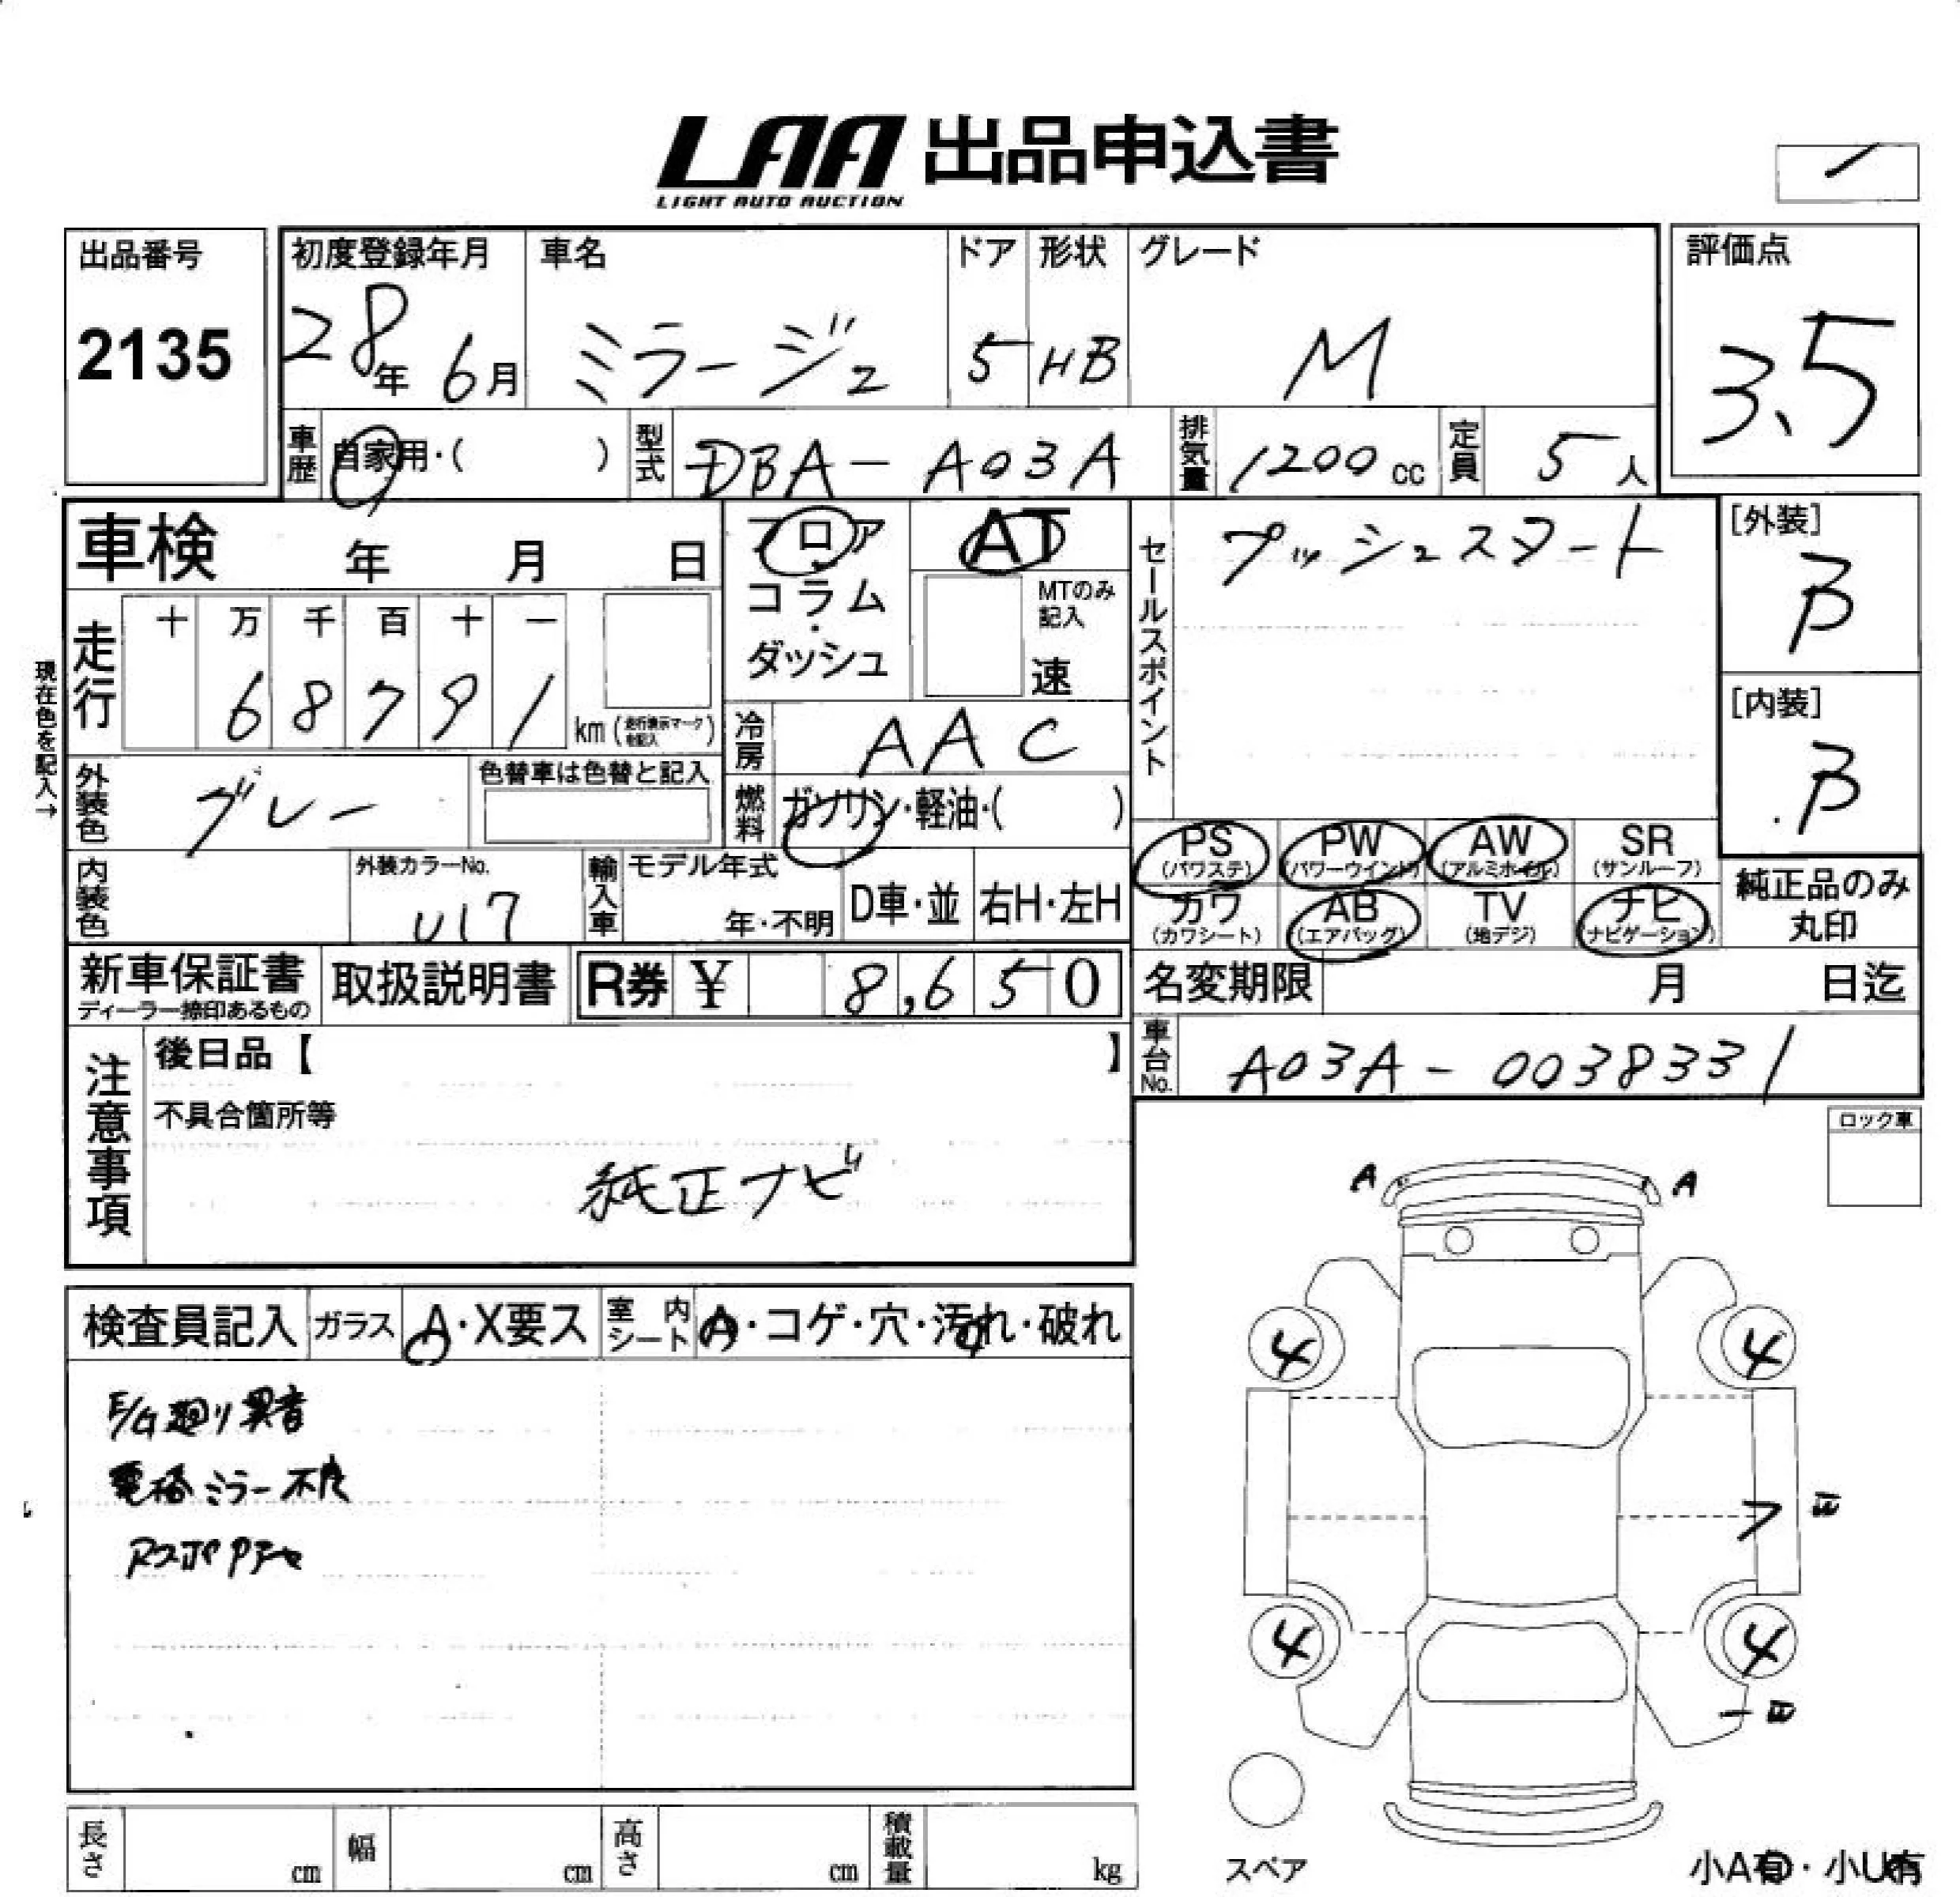 LAA 出品申込書
LIGHT AUTO AUCTION
出品番号
2135
初度登録年月
28年 6月
車名
ミラージュ
ドア
5
形状
HB
グレード
M
評価点
3.5
車歴
自家用・( )
型式
DBA-A03A
排気量
1200cc
定員
5人
車検 年 月 日
フロア
コラム
・
ダッシュ
AT
MTのみ
記入
速
セールスポイント
プッシュスタート
[外装]
B
[内装]
B
現在色を記入→
走行
十 万 千 百 十 一
6 8 7 9 1
km (走行表示マークを記入)
冷房
AAC
燃料
ガソリン・軽油・( )
外装色
グレー
色替車は色替と記入
内装色
外装カラーNo.
U17
輸入車
モデル年式
年・不明
D車・並
右H・左H
PS
(パワステ)
PW
(パワーウインド)
AW
(アルミホイル)
SR
(サンルーフ)
カワ
(カワシート)
AB
(エアバッグ)
TV
(地デジ)
ナビ
(ナビゲーション)
純正品のみ
丸印
新車保証書
ディーラー捺印あるもの
取扱説明書
R券 ¥ 8,650
名変期限 月 日迄
車台No.
A03A-0038331
注意事項
後日品【 】
不具合箇所等
純正ナビ
ロック車
A A
検査員記入
ガラス
A・X要ス
室内シート
A・コゲ・穴・汚れ・破れ
E/G廻り異音
電格ミラー不良
4 4
4 4
スペア
長さ cm
幅 cm
高さ cm
積載量 kg
小A有・小U有